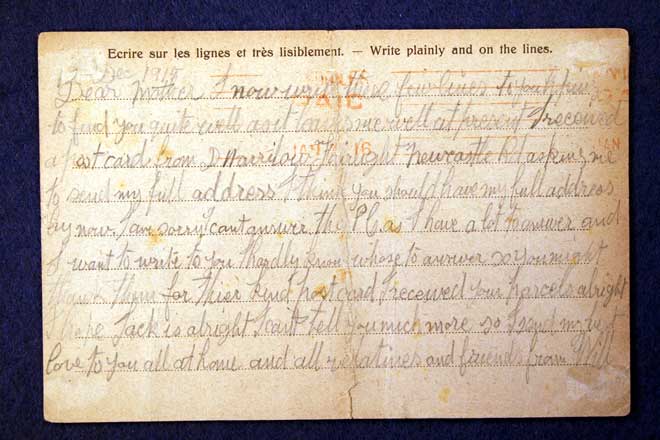 Ecrire sur les lignes et très lisiblement. — Write plainly and on the lines.
Dec 191
Dear Mother I now write these few lines to you
to find you quite well as it leaves me well at present I received
a post card from D Newcastle asking me
to send my full address I think you should have my full address
by now. I am sorry I cant answer the P.C. as I have a lot to answer and
I want to write to you I hardly know whose to answer so you might
thank them for thier kind post card I received your parcels alright
I hope Jack is alright I cant tell you much more so I send my best
love to you all at home and all relatines and friends from Will
JA 16